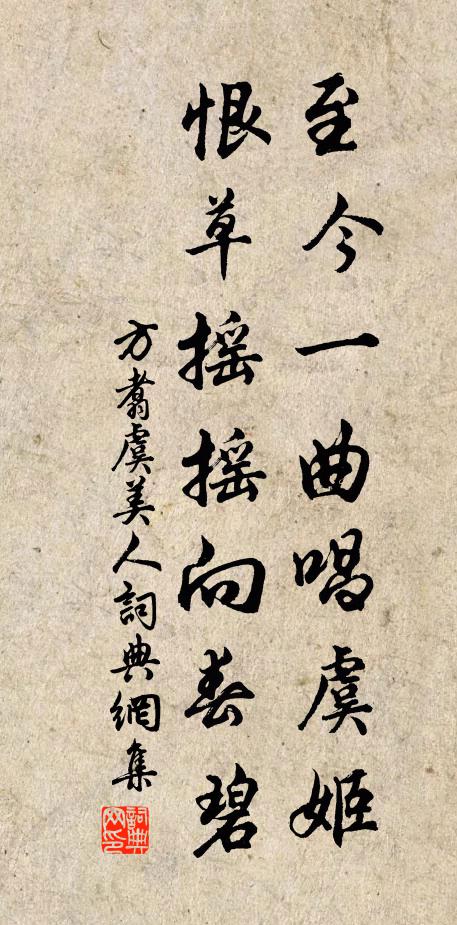 至今一曲唱虞姬
恨草摇摇向春碧
方翥虞美人詞典網集
詞典网印